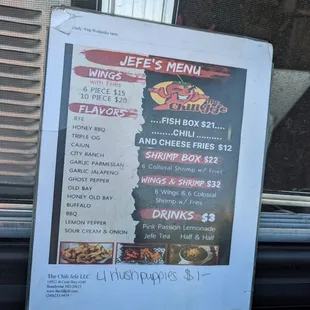 JEFE'S MENU
WINGS
with Fries
6 PIECE $15
10 PIECE $20
FLAVORS
RTE
HONEY BBQ
TRIPLE OG
CAJUN
CITY RANCH
GARLIC PARMESAN
GARLIC JALAPENO
GHOST PEPPER
OLD BAY
HONEY OLD BAY
BUFFALO
BBQ
LEMON PEPPER
SOUR CREAM & ONION
FISH BOX $21....
....CHILI..........
AND CHEESE FRIES $12
SHRIMP BOX $22
6 Collosal Shrimp w/ Fries
WINGS & SHRIMP $32
6 Wings & 6 Colossal
Shrimp w/ Fries
DRINKS $3
Pink Passion Lemonade
Jefe Tea Half & Half
The Chili Jefe LLC
4 Hushpuppies $1-